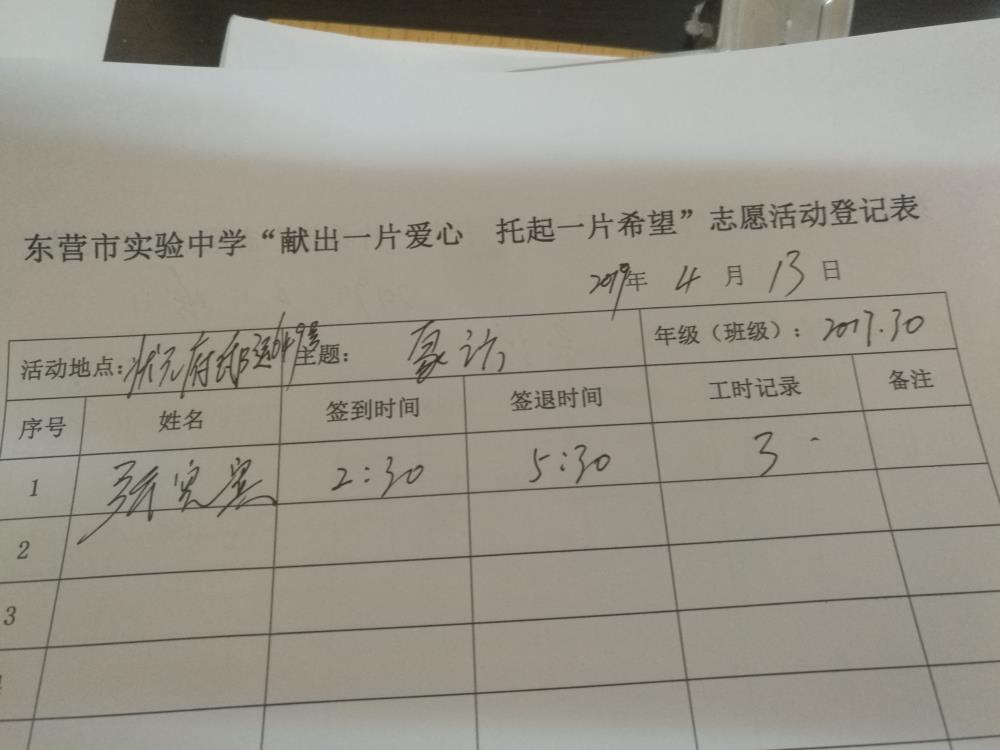 东营市实验中学“献出一片爱心 托起一片希望”志愿活动登记表
2019年 4 月 13 日
活动地点：状元府邸 主题： 年级（班级）：2017.30
序号 姓名 签到时间 签退时间 工时记录 备注
1 张 2:30 5:30 3
2
3